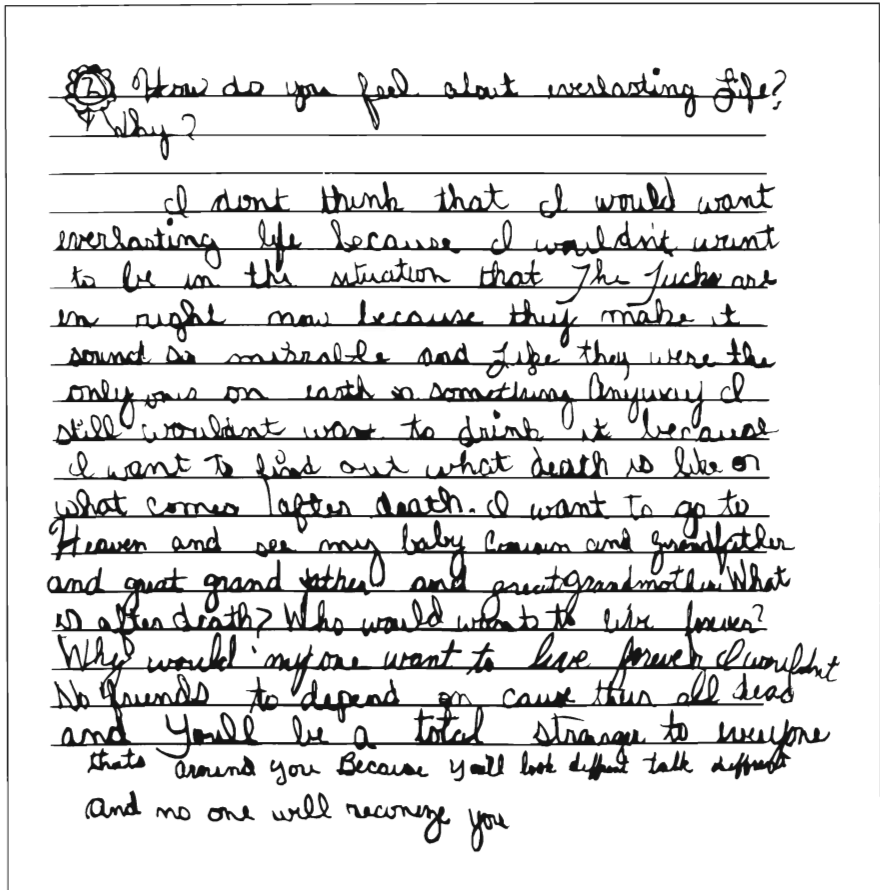 2 How do you feel about everlasting Life?
Why?
I dont think that I would want
everlasting life because I wouldn't want
to be in the situation that The Tucks are
in right now because they make it
sound so misrable and Like they were the
only ones on earth or something Anyway I
still wouldnt want to drink it because
I want to find out what death is like or
what comes after death. I want to go to
Heaven and see my baby Cousin and grandfather
and great grand father and great grandmother. What
is after death? Who would want to live forever?
Why would anyone want to live forever I wouldn't
No friends to depend on cause their all dead
and You'll be a total stranger to everyone
thats around you Because you'll look diffrent talk diffrent
and no one will reconize you